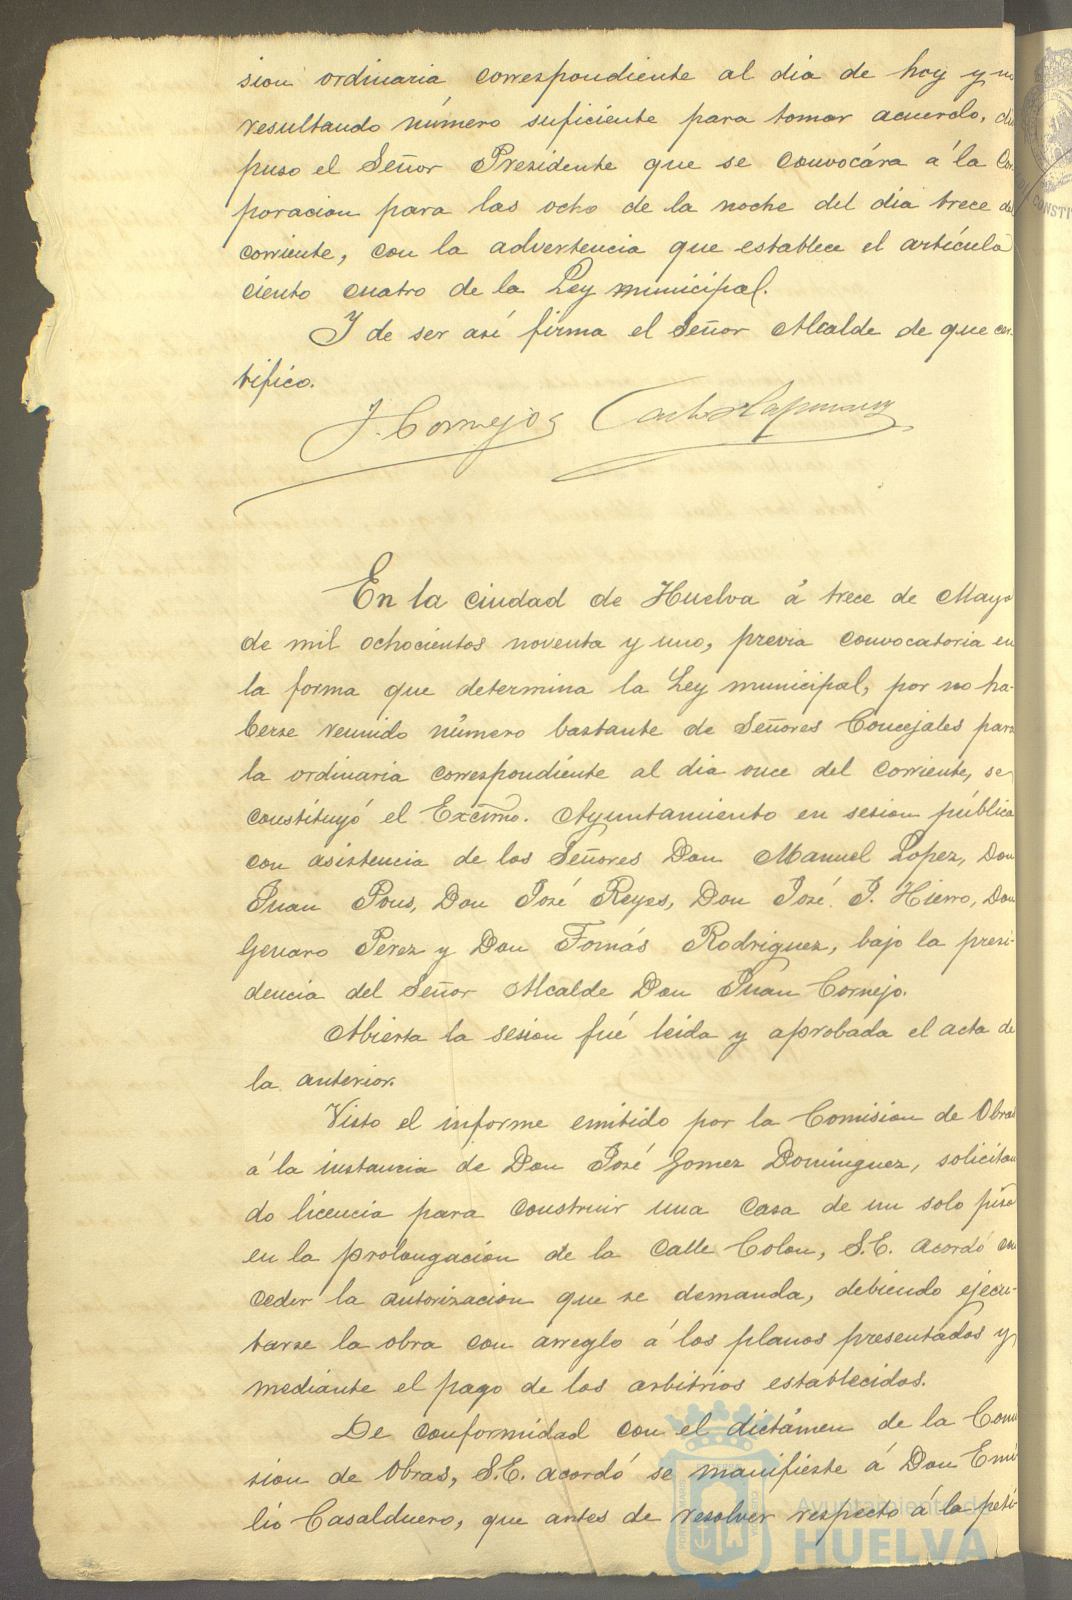 sion ordinaria correspondiente al dia de hoy y no
resultando número suficiente para tomar acuerdo, dis
puso el Señor Presidente que se convocára á la Cor
poracion para las ocho de la noche del dia trece del
corriente, con la advertencia que establece el artículo
ciento cuatro de la Ley municipal.
Y de ser así firma el Señor Alcalde de que cer-
tifico.
J. Cornejo
En la ciudad de Huelva á trece de Mayo
de mil ochocientos noventa y uno, previa convocatoria en
la forma que determina la Ley municipal, por no ha-
berse reunido número bastante de Señores Concejales para
la ordinaria correspondiente al dia once del corriente, se
constituyó el Excmo. Ayuntamiento en sesion pública
con asistencia de los Señores Don Manuel Lopez, Don
Juan Pons, Don José Reyes, Don José J. Hierro, Don
Genaro Perez y Don Tomás Rodriguez, bajo la presi-
dencia del Señor Alcalde Don Juan Cornejo.
Abierta la sesion fué leida y aprobada el acta de
la anterior.
Visto el informe emitido por la Comision de Obras
á la instancia de Don José Gomez Dominguez, solicitan
do licencia para construir una casa de un solo piso
en la prolongacion de la calle Colon, S.E. acordó con
ceder la autorizacion que se demanda, debiendo ejecu-
tarse la obra con arreglo á los planos presentados y
mediante el pago de los arbitrios establecidos.
De conformidad con el dictámen de la Comi
sion de Obras, S.E. acordó se manifieste á Don Emi
lio Casalduero, que antes de resolver respecto á la peti-
Ayuntamiento de
HUELVA